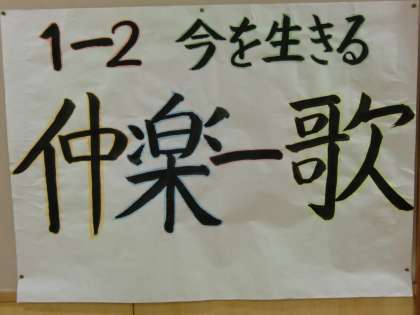 1-2 今を生きる
仲楽一歌